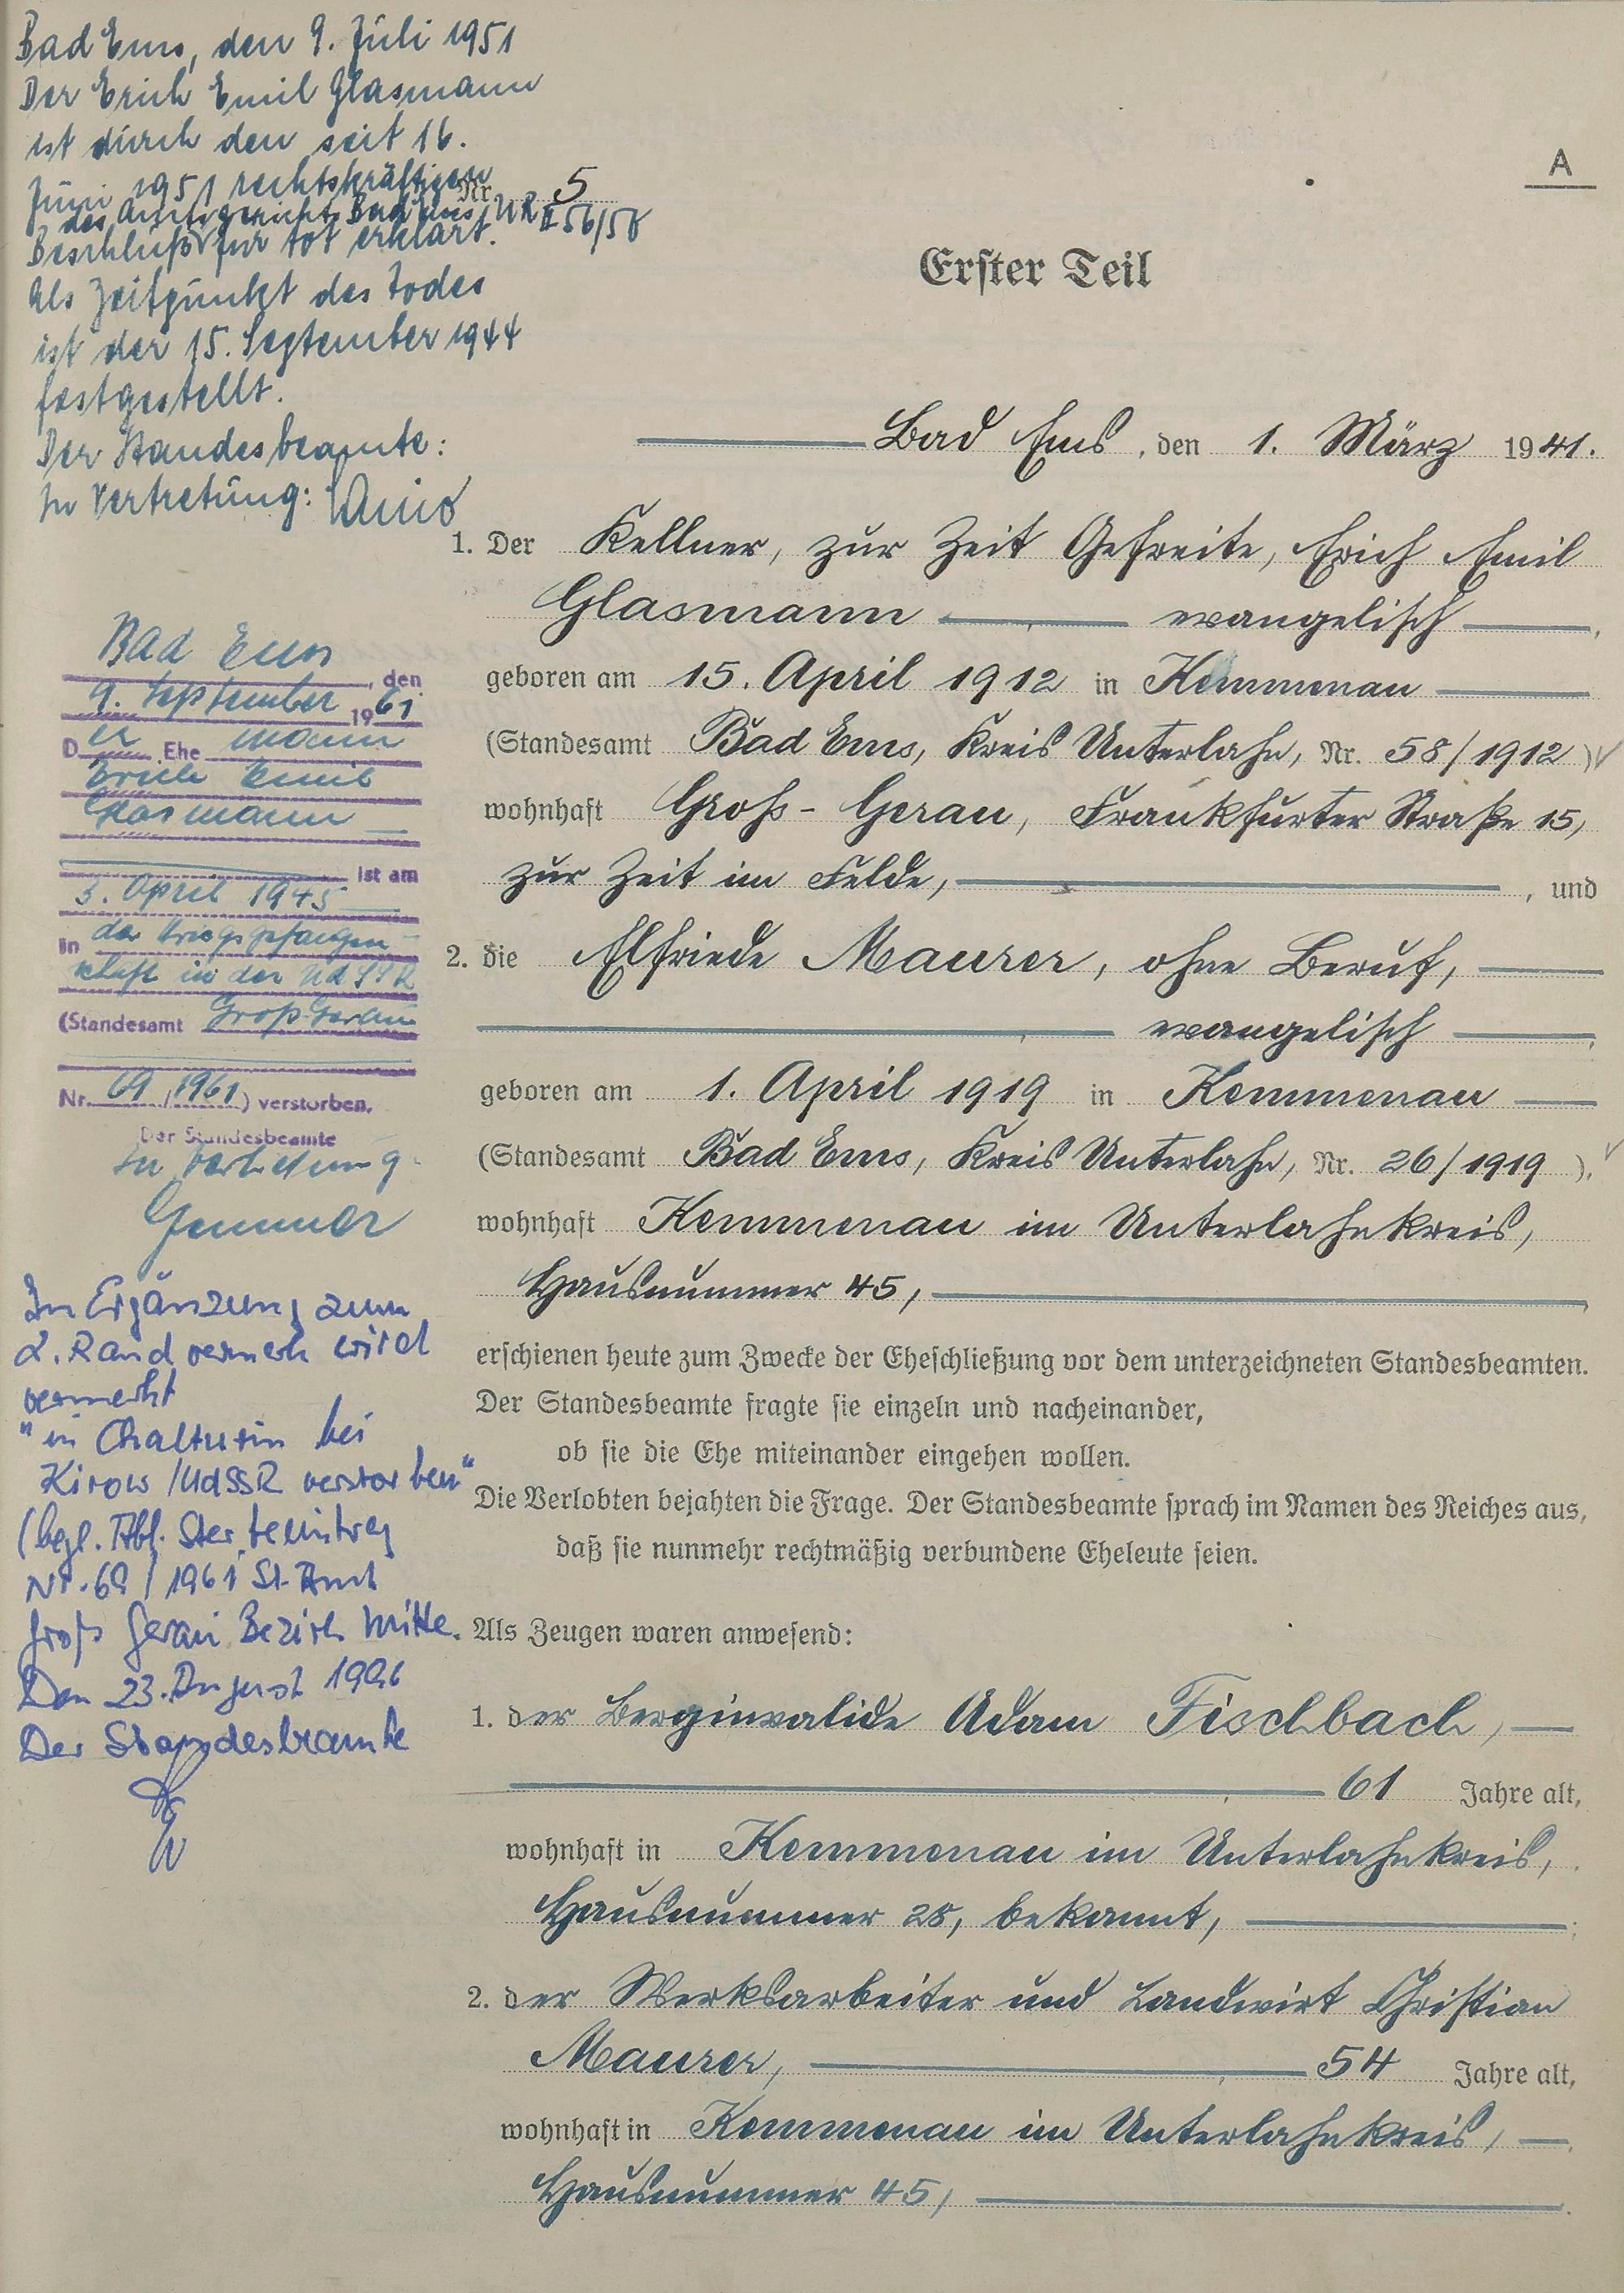 Bad Ems, den 9. Juli 1951
Der Erich Emil Glasmann
ist durch den seit 16.
Juni 1951 rechtskräftigen
des Amtsgerichts Bad Ems, UR II 56/50
Beschluß für tot erklärt.
Als Zeitpunkt des Todes
ist der 15. September 1944
festgestellt.
Der Standesbeamte:
In Vertretung:
Bad Ems, den
9. September 1961
Der Ehemann
Erich Emil
Glasmann
ist am
3. April 1945
in der Kriegsgefangen-
schaft in der UdSSR
(Standesamt Groß-Gerau
Nr. 69/1961) verstorben.
Der Standesbeamte
In Vertretung
Gemmer
In Ergänzung zum
2. Randvermerk wird
vermerkt
"in Chalturin bei
Kirow/UdSSR verstorben"
(begl. Abl. Sterbeeintrag
Nr. 69/1961 St. Amt
Groß Gerau Bezirk Mitte.
Den 23. August 1996
Der Standesbeamte
A
Nr. 5
Erster Teil
Bad Ems, den 1. März 1941.
1. Der Kellner, zur Zeit Gefreite, Erich Emil
Glasmann evangelisch
geboren am 15. April 1912 in Kemmenau
(Standesamt Bad Ems, Kreis Unterlahn, Nr. 58/1912)
wohnhaft Groß-Gerau, Frankfurter Straße 15,
zur Zeit im Felde, , und
2. die Elfriede Maurer, ohne Beruf,
evangelisch
geboren am 1. April 1919 in Kemmenau
(Standesamt Bad Ems, Kreis Unterlahn, Nr. 26/1919),
wohnhaft Kemmenau im Unterlahnkreis,
Hausnummer 45,
erschienen heute zum Zwecke der Eheschließung vor dem unterzeichneten Standesbeamten.
Der Standesbeamte fragte sie einzeln und nacheinander,
ob sie die Ehe miteinander eingehen wollen.
Die Verlobten bejahten die Frage. Der Standesbeamte sprach im Namen des Reiches aus,
daß sie nunmehr rechtmäßig verbundene Eheleute seien.
Als Zeugen waren anwesend:
1. der Berginvalide Adam Fischbach,
61 Jahre alt,
wohnhaft in Kemmenau im Unterlahnkreis,
Hausnummer 28, bekannt,
2. der Werksarbeiter und Landwirt Christian
Maurer, 54 Jahre alt,
wohnhaft in Kemmenau im Unterlahnkreis,
Hausnummer 45,